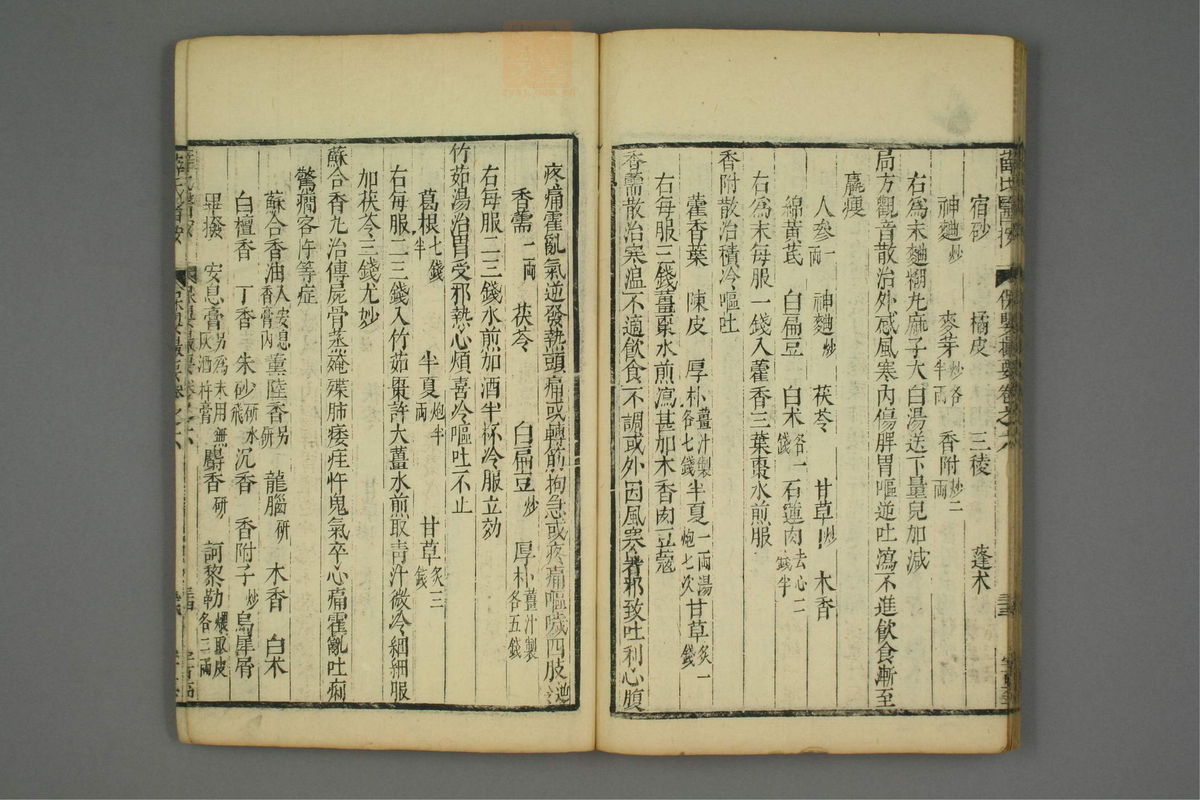 薛氏醫按 保嬰撮要卷之六
宿砂 橘皮 三稜 蓬朮
神麯炒 麥芽炒各半兩 香附炒二兩
右為末麯糊丸麻子大白湯送下量兒加減
局方觀音散治外感風寒內傷脾胃嘔逆吐瀉不進飲食漸至
羸瘦
人參一兩 神麯炒 茯苓 甘草炒 木香
綿黃芪 白扁豆 白朮各一錢 石蓮肉去心二錢半
右為末每服一錢入藿香三葉棗水煎服
香附散治積冷嘔吐
藿香葉 陳皮 厚朴薑汁製各七錢 半夏一兩湯炮七次 甘草炙一錢
右每服三錢薑棗水煎瀉甚加木香肉豆蔻
香薷散治寒溫不適飲食不調或外因風寒暑邪致吐利心腹
疼痛霍亂氣逆發熱頭痛或轉筋拘急或疼痛嘔噦四肢逆
香薷二兩 茯苓 白扁豆炒 厚朴薑汁製各五錢
右每服二三錢水煎加酒半杯冷服立効
竹茹湯治胃受邪熱心煩喜冷嘔吐不止
葛根七錢半 半夏炮半兩 甘草炙三錢
右每服二三錢入竹茹棗許大薑水煎取青汁微冷細細服
加茯苓三錢尤妙
蘇合香丸治傳屍骨蒸殗殜肺痿疰忤鬼氣卒心痛霍亂吐痢
驚癇客忤等症
蘇合香油入安息香膏內 薰陸香另研 龍腦研 木香 白朮
白檀香 丁香 朱砂研水飛 沉香 香附子炒 烏犀屑
畢撥 安息膏另為末用無灰酒幷膏 麝香研 訶黎勒煨取皮各三兩
薛氏醫按